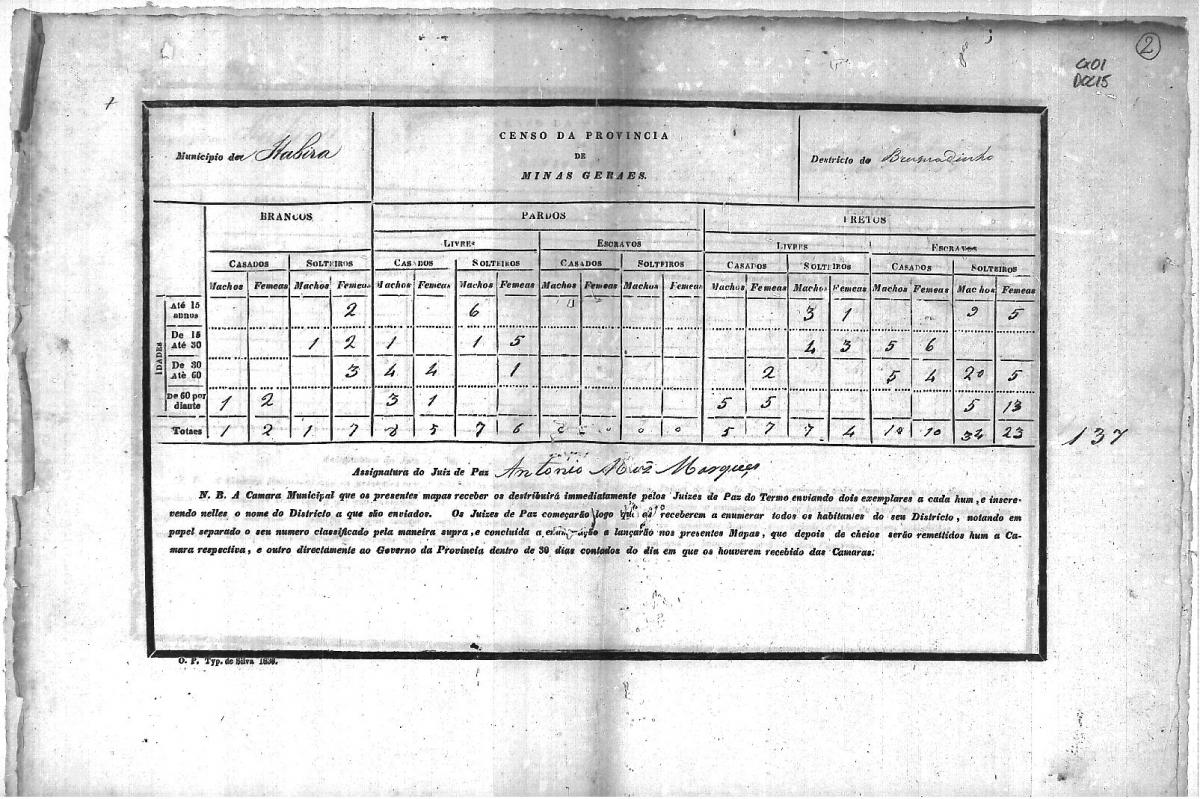 2
CX01
DOC15
Municipio de Itabira
CENSO DA PROVINCIA
DE
MINAS GERAES.
Destricto do Brumadinho
BRANCOS PARDOS PRETOS
LIVRES ESCRAVOS LIVRES ESCRAVOS
CASADOS SOLTEIROS CASADOS SOLTEIROS CASADOS SOLTEIROS CASADOS SOLTEIROS CASADOS SOLTEIROS
Machos Femeas Machos Femeas Machos Femeas Machos Femeas Machos Femeas Machos Femeas Machos Femeas Machos Femeas Machos Femeas Machos Femeas
IDADES
Até 15 annos 2 6 3 1 9 5
De 15 Até 30 1 2 1 1 5 4 3 5 6
De 30 Atè 60 3 4 4 1 2 5 4 20 5
De 60 por diante 1 2 3 1 5 5 5 13
Totaes 1 2 1 7 8 5 7 6 0 0 0 0 5 7 7 4 10 10 34 23
137
Assignatura do Juiz de Paz Antonio Marques
N. B. A Camara Municipal que os presentes mapas receber os destribuirá immediatamente pelos Juizes de Paz do Termo enviando dois exemplares a cada hum, e inscre-
vendo nelles o nome do Districto a que são enviados. Os Juizes de Paz começarão logo que os receberem a enumerar todos os habitantes do seu Districto, notando em
papel separado o seu numero classificado pela maneira supra, e concluida a lançarão nos presentes Mapas, que depois de cheios serão remettidos hum a Ca-
mara respectiva, e outro directamente ao Governo da Provincia dentro de 30 dias contados do dia em que os houverem recebido das Camaras.
O. P. Typ. de Silva 1838.